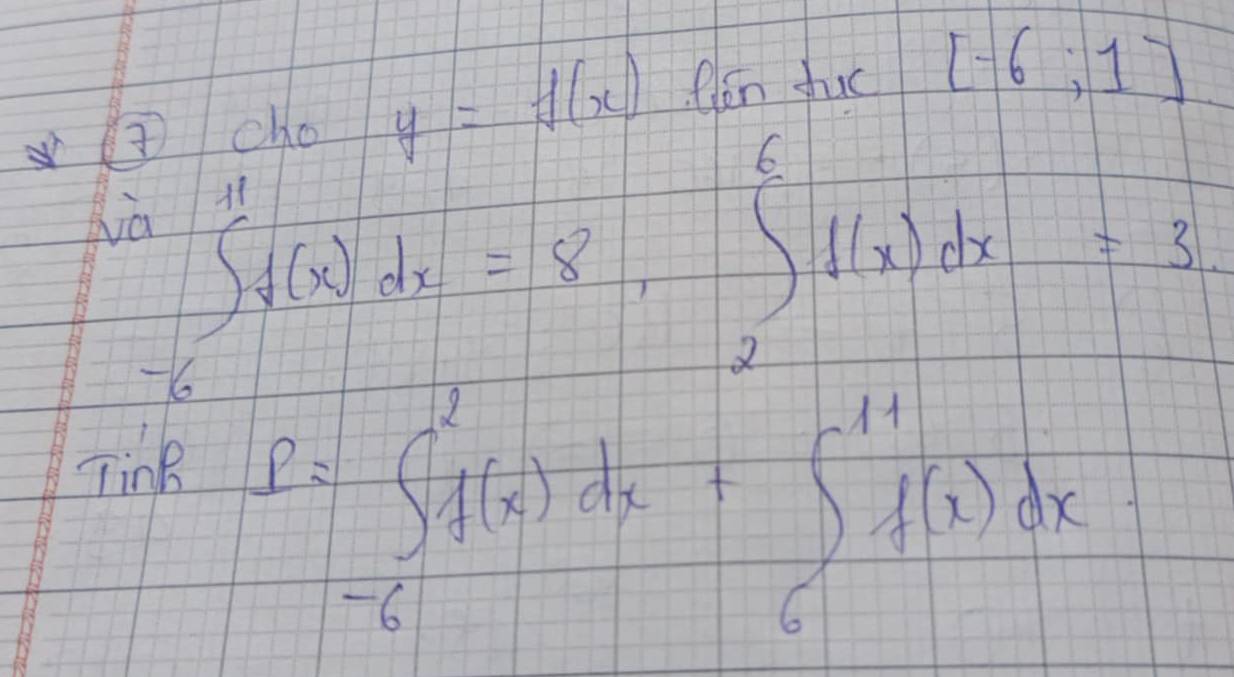 ⑦ Cho y = f(x) liên tục [-6 ; 1]
và ∫_{-6}^{11} f(x) dx = 8 , ∫_{2}^{6} f(x) dx = 3.
Tính P = ∫_{-6}^{2} f(x) dx + ∫_{6}^{11} f(x) dx .